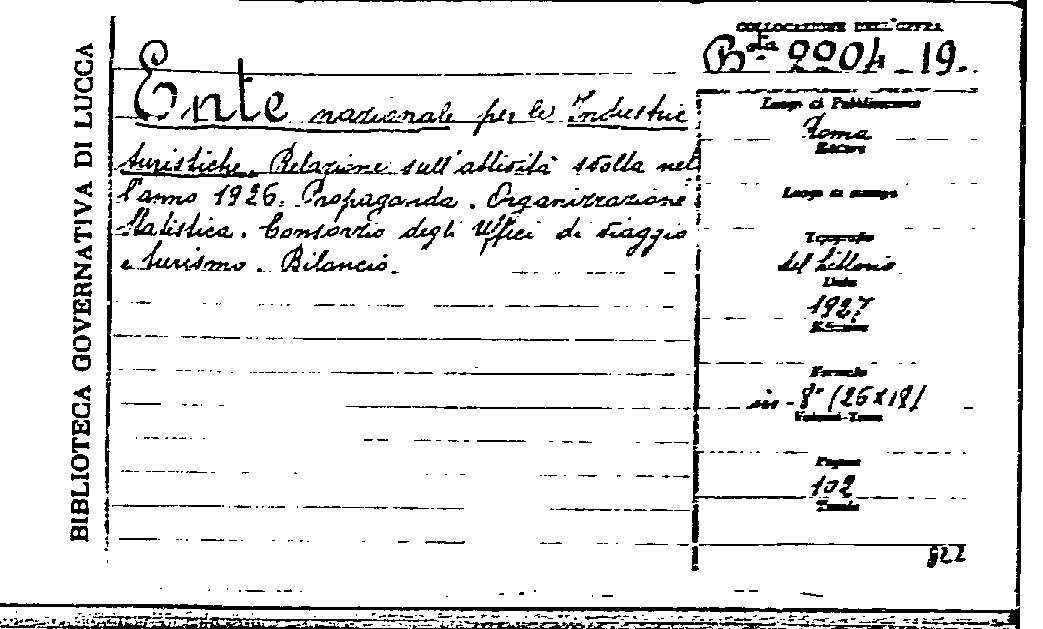 BIBLIOTECA GOVERNATIVA DI LUCCA
COLLOCAZIONE DELL'OPERA
B.ta 2204 19.
Ente nazionale per le Industrie
turistiche. Relazione sull'attività svolta nel
l'anno 1926. Propaganda. Organizzazione
Statistica. Consorzio degli Uffici di viaggio
e turismo. Bilancio.
Luogo di Pubblicazione
Roma
Editore
Luogo di stampa
Tipografia
del Littorio
Data
1927
Edizione
Formato
in-8° (26x18)
Volumi-Tomi
Pagine
102
Tavole
822